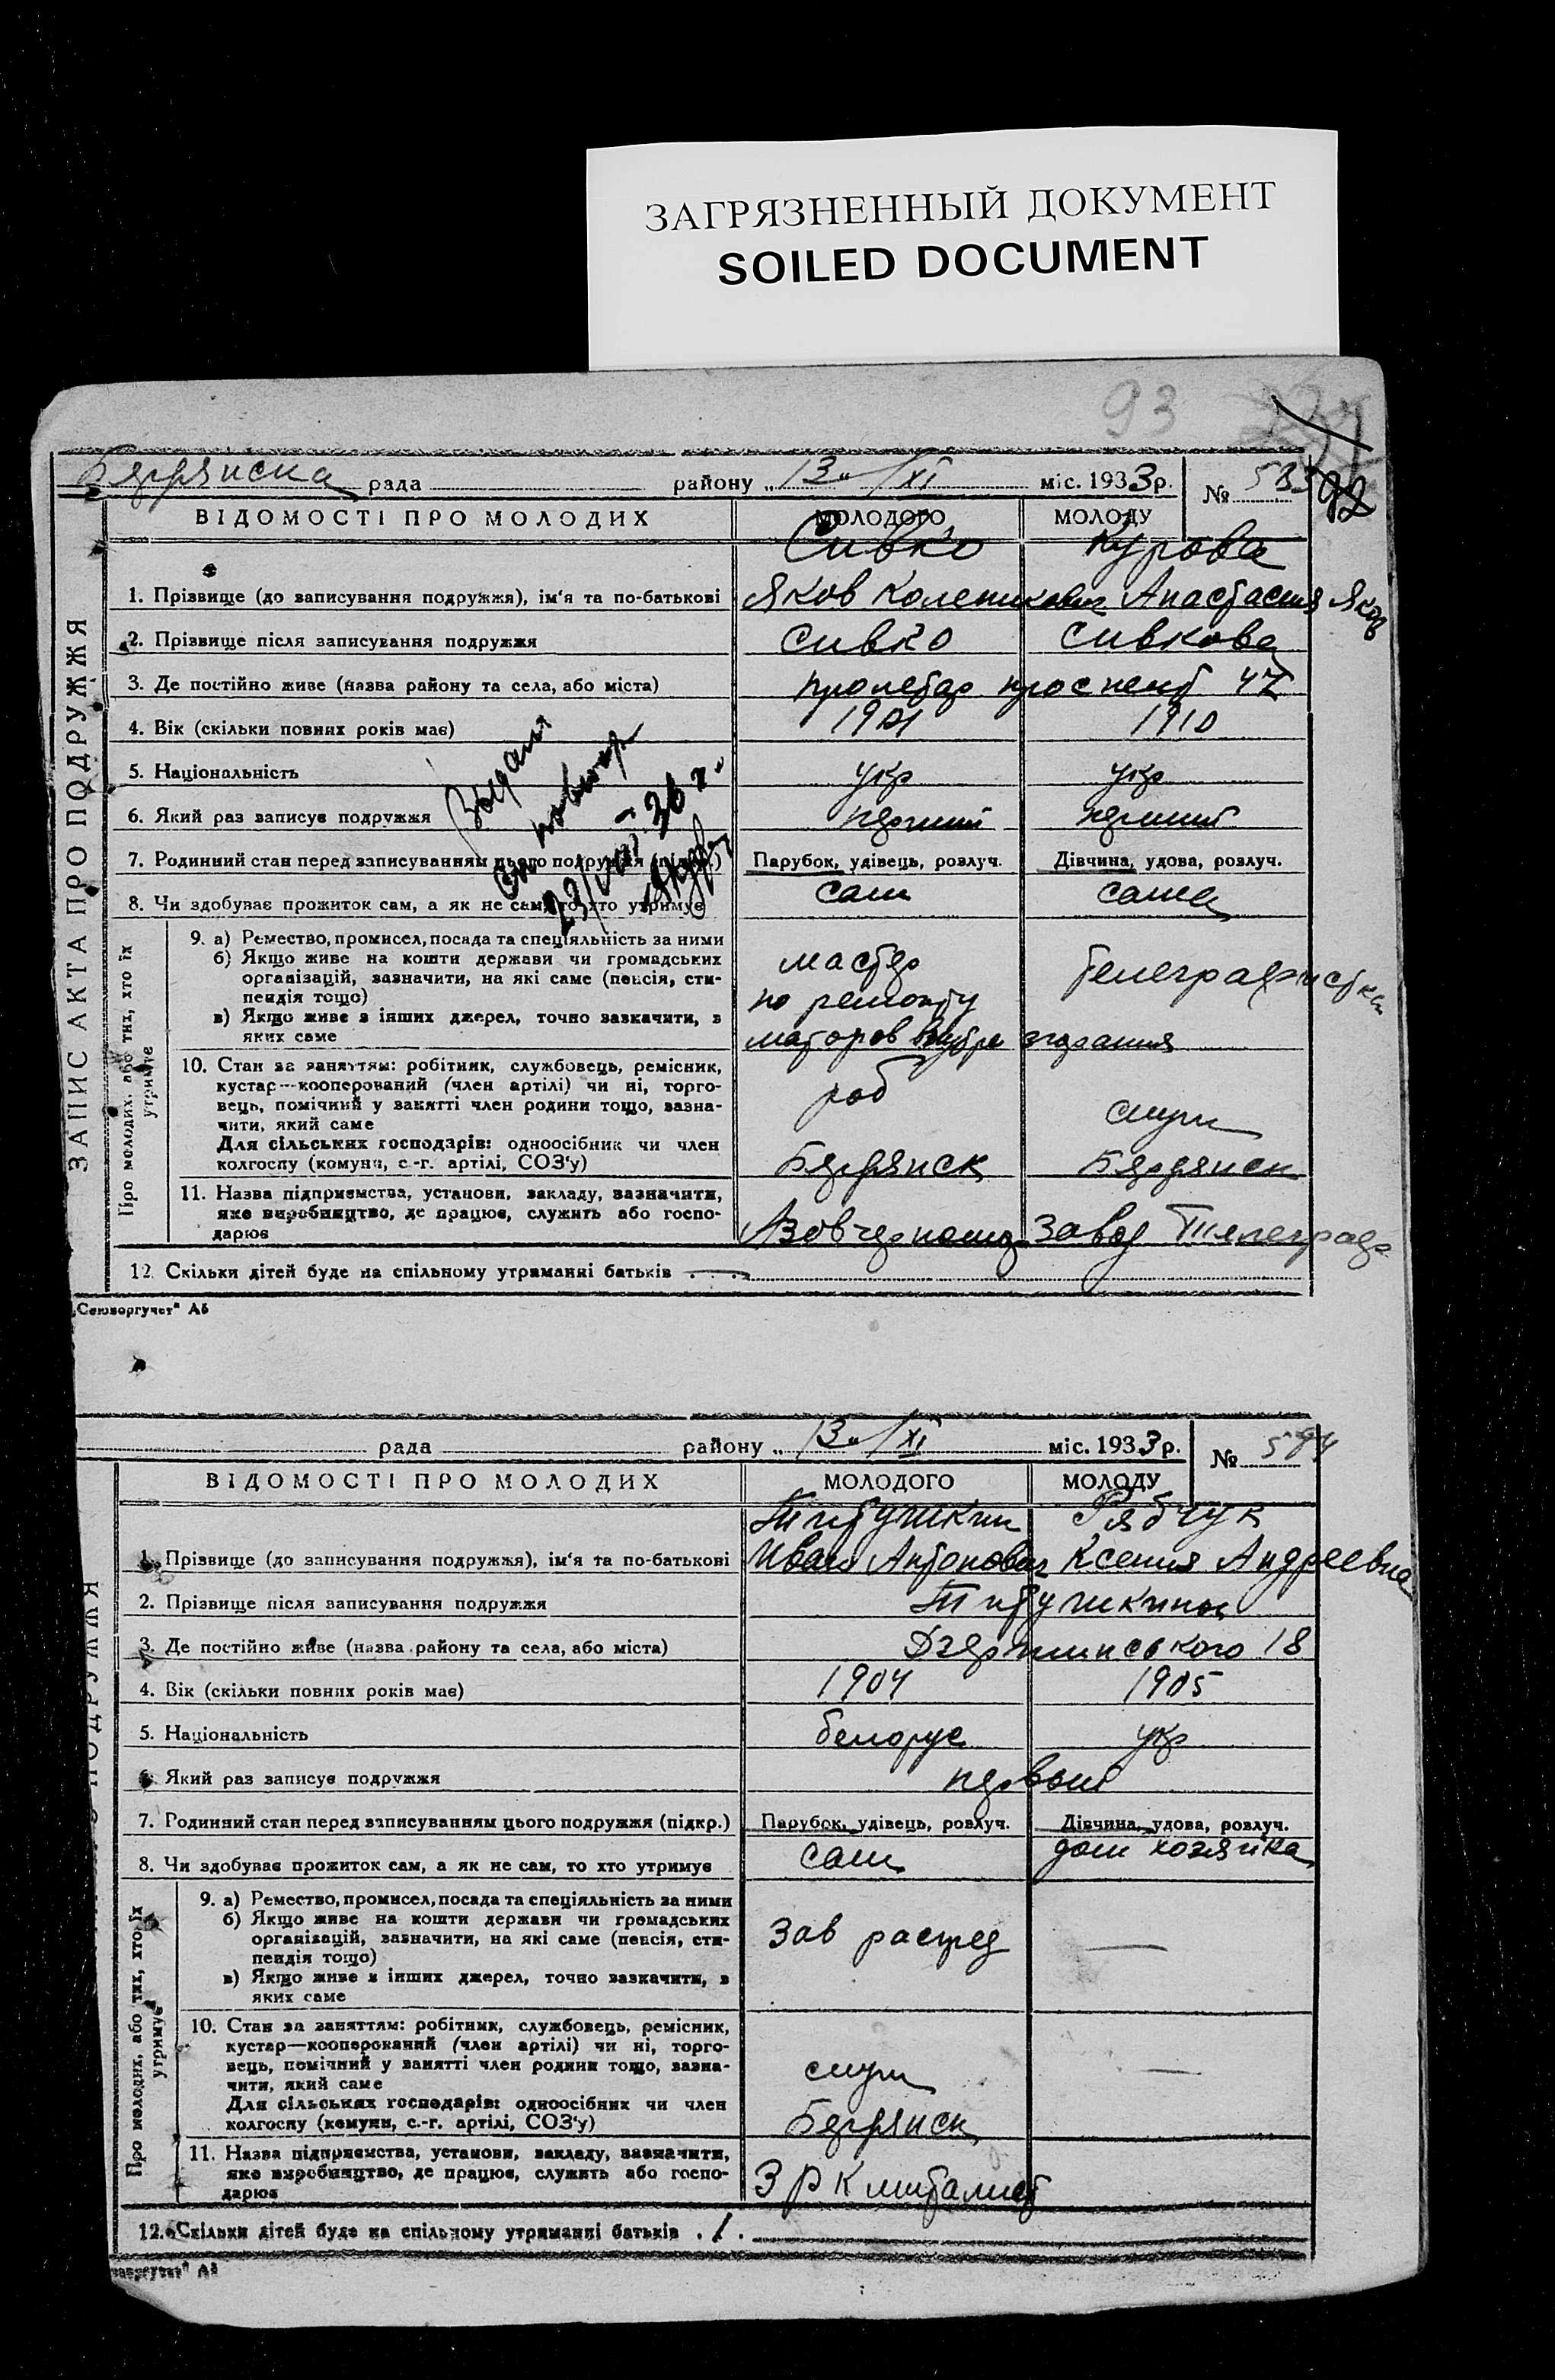 ЗАГРЯЗНЕННЫЙ ДОКУМЕНТ
SOILED DOCUMENT
93
92
Бердянска рада району „13“ /XI міс. 1933 р. № 583
ВІДОМОСТІ ПРО МОЛОДИХ МОЛОДОГО МОЛОДУ
Сивко Курова
1. Прізвище (до записування подружжя), ім'я та по-батькові Яков Анастасия Яков
2. Прізвище після записування подружжя Сивко Сивкова
3. Де постійно живе (назва району та села, або міста) пролетар проспект 47
4. Вік (скільки повних років має) 1901 1910
5. Національність укр укр
6. Який раз записує подружжя первый первый
7. Родинний стан перед записуванням цього подружжя (підкр.) Парубок, удівець, розлуч. Дівчина, удова, розлуч.
8. Чи здобуває прожиток сам, а як не сам, то хто утримує сам сама
Выдан
повтор
23/VIII 36 г.
ЗАПИС АКТА ПРО ПОДРУЖЖЯ
Про молодих, або тих, хто їх утримує
9. а) Ремество, промисел, посада та спеціяльність за ними
б) Якщо живе на кошти держави чи громадських
організацій, зазначити, на які саме (пенсія, сти-
пендія тощо)
в) Якщо живе з інших джерел, точно зазначити, з
яких саме
мастер
по ремонту
маторов внутре згорания
телеграфистка
10. Стан за заняттям: робітник, службовець, ремісник,
кустар—кооперований (член артілі) чи ні, торго-
вець, помічний у занятті член родини тощо, зазна-
чити, який саме
Для сільських господарів: одноосібник чи член
колгоспу (комуни, с.-г. артілі, СОЗ'у)
роб служ
Бердянск Бердянск
11. Назва підприємства, установи, закладу, зазначити,
яке виробництво, де працює, служить або госпо-
дарює
завод Телеграф
12. Скільки дітей буде на спільному утриманні батьків —
„Союзоргучет" Аб
рада району „13“ /XI міс. 1933 р. № 584
ВІДОМОСТІ ПРО МОЛОДИХ МОЛОДОГО МОЛОДУ
Титушкин Рябчук
1. Прізвище (до записування подружжя), ім'я та по-батькові Иван Антонович Ксения Андреевна
2. Прізвище після записування подружжя Титушкины
3. Де постійно живе (назва району та села, або міста) Дзержинського 18
4. Вік (скільки повних років має) 1904 1905
5. Національність белорус укр
6. Який раз записує подружжя первый
7. Родинний стан перед записуванням цього подружжя (підкр.) Парубок, удівець, розлуч. Дівчина, удова, розлуч.
8. Чи здобуває прожиток сам, а як не сам, то хто утримує сам дом хозяйка
ПОДРУЖЖЯ
Про молодих, або тих, хто їх утримує
9. а) Ремество, промисел, посада та спеціяльність за ними
б) Якщо живе на кошти держави чи громадських
організацій, зазначити, на які саме (пенсія, сти-
пендія тощо)
в) Якщо живе з інших джерел, точно зазначити, з
яких саме
Зав распред —
10. Стан за заняттям: робітник, службовець, ремісник,
кустар—кооперований (член артілі) чи ні, торго-
вець, помічний у занятті член родини тощо, зазна-
чити, який саме
Для сільських господарів: одноосібник чи член
колгоспу (комуни, с.-г. артілі, СОЗ'у)
служ —
Бердянск
11. Назва підприємства, установи, закладу, зазначити,
яке виробництво, де працює, служить або госпо-
дарює
ЗРК
12. Скільки дітей буде на спільному утриманні батьків . 1 .